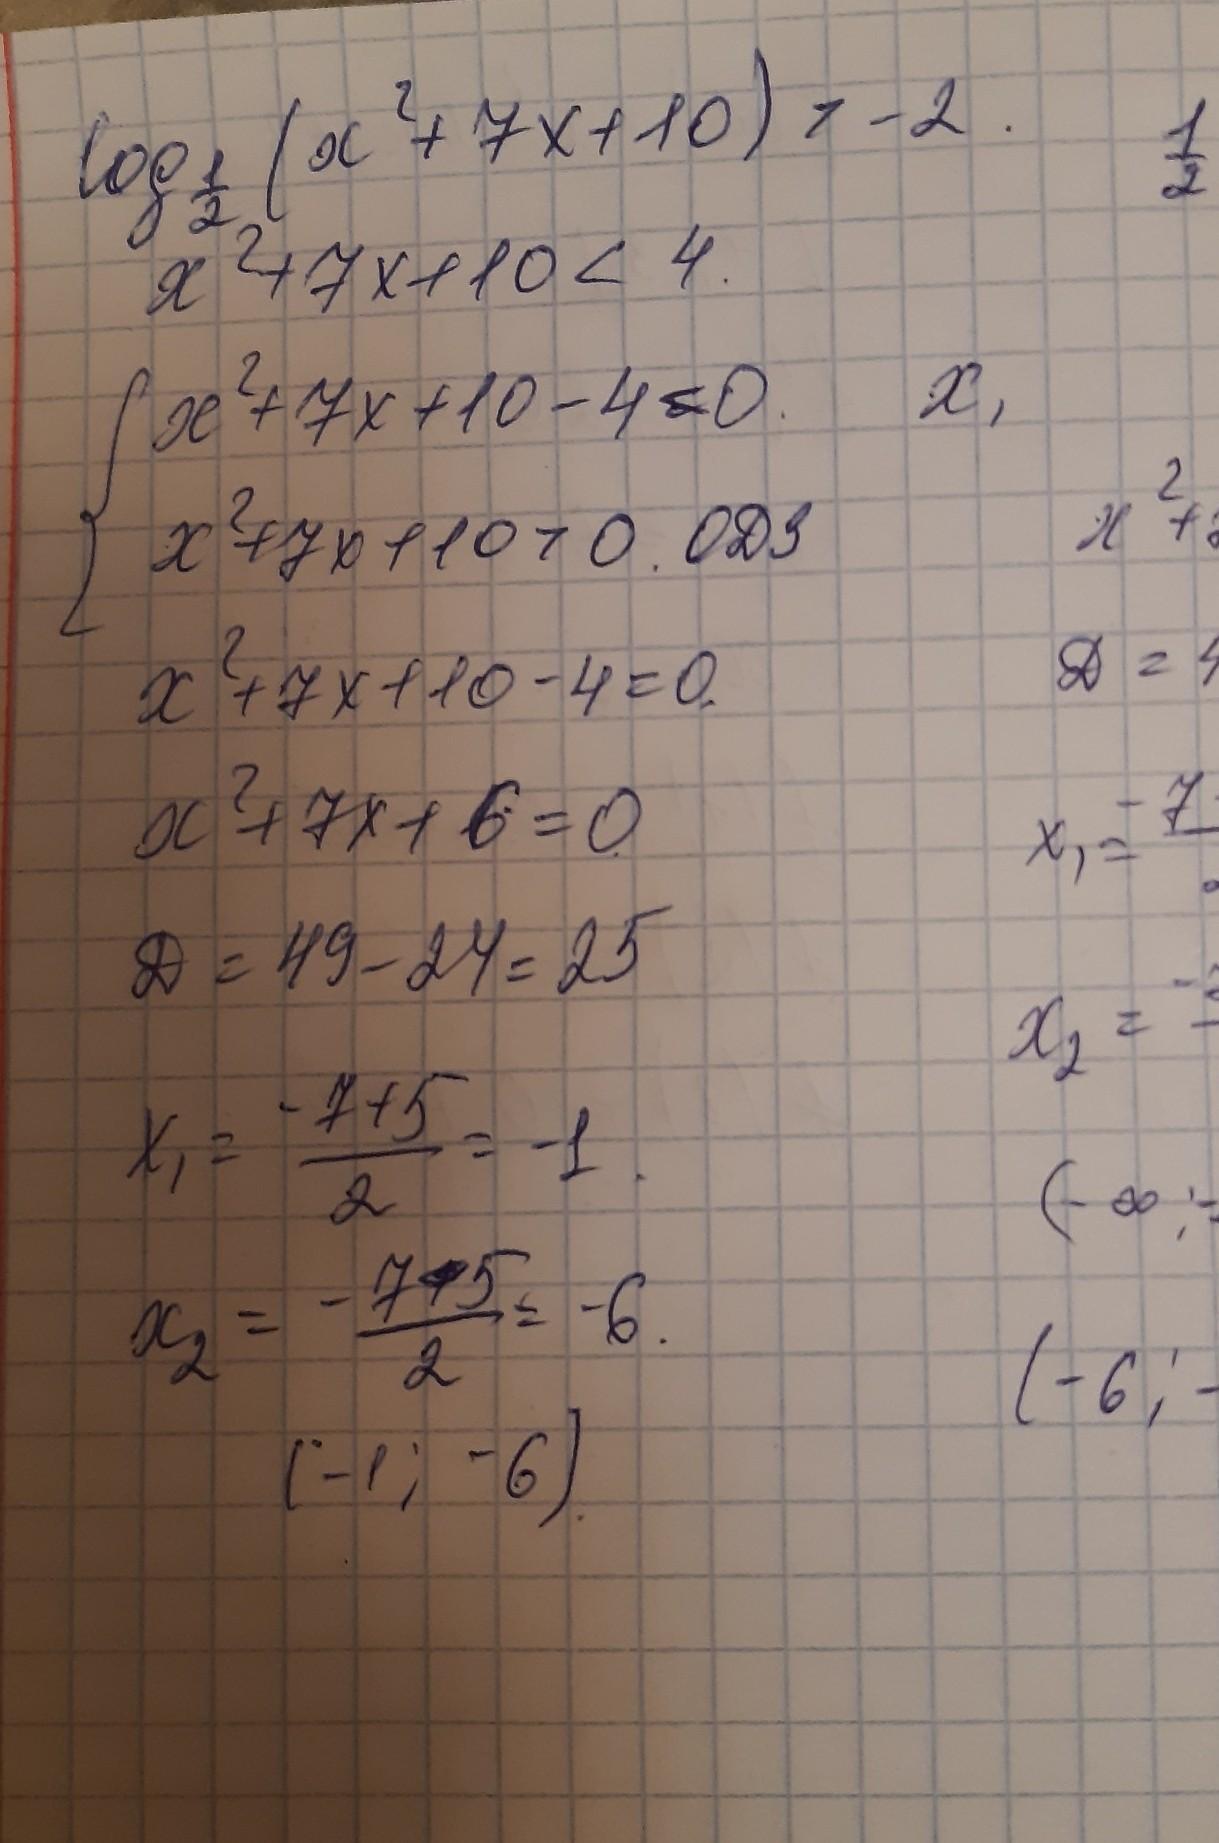 log_{1/2} (x² + 7x + 10) > -2.
x² + 7x + 10 < 4.
{ x² + 7x + 10 - 4 < 0.
x² + 7x + 10 > 0. ОДЗ
x² + 7x + 10 - 4 = 0.
x² + 7x + 6 = 0
D = 49 - 24 = 25
x₁ = (-7+5)/2 = -1.
x₂ = -(7+5)/2 = -6.
(-1; -6).
1/2
x₁
x² +
D = 4
x₁ = -7
x₂ = -
(-∞; -
(-6; -